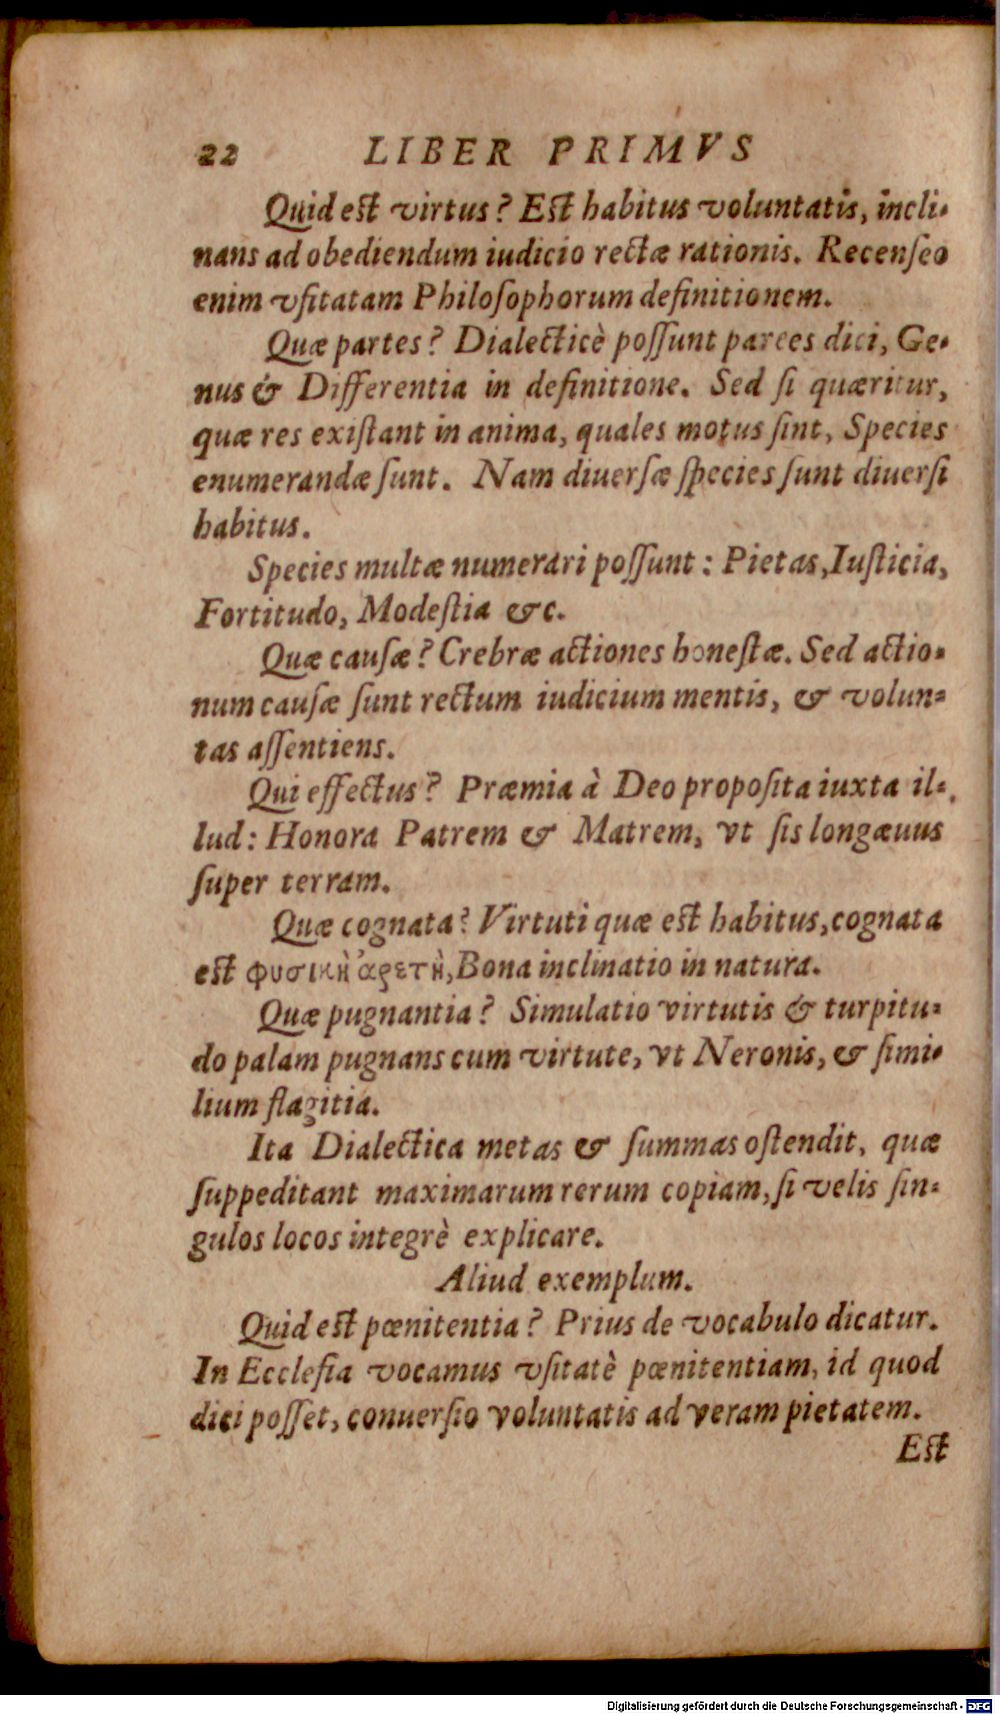 22 LIBER PRIMVS
Quid eſt virtus? Eſt habitus voluntatis, incli-
nans ad obediendum iudicio rectæ rationis. Recenſeo
enim vſitatam Philoſophorum definitionem.
Quæ partes? Dialecticè poſſunt partes dici, Ge-
nus & Differentia in definitione. Sed ſi quæritur,
quæ res exiſtant in anima, quales motus ſint, Species
enumerandæ ſunt. Nam diuerſæ ſpecies ſunt diuerſi
habitus.
Species multæ numerari poſſunt: Pietas, Iuſticia,
Fortitudo, Modeſtia &c.
Quæ cauſæ? Crebræ actiones honeſtæ. Sed actio-
num cauſæ ſunt rectum iudicium mentis, & volun-
tas aſſentiens.
Qui effectus? Præmia à Deo propoſita iuxta il-
lud: Honora Patrem & Matrem, vt ſis longæuus
ſuper terram.
Quæ cognata? Virtuti quæ eſt habitus, cognata
eſt φυσικὴ ἀρετὴ, Bona inclinatio in natura.
Quæ pugnantia? Simulatio virtutis & turpitu-
do palam pugnans cum virtute, vt Neronis, & ſimi-
lium flagitia.
Ita Dialectica metas & ſummas oſtendit, quæ
ſuppeditant maximarum rerum copiam, ſi velis ſin-
gulos locos integrè explicare.
Aliud exemplum.
Quid eſt pœnitentia? Prius de vocabulo dicatur.
In Eccleſia vocamus vſitatè pœnitentiam, id quod
dici poſſet, conuerſio voluntatis ad veram pietatem.
Eſt
Digitalisierung gefördert durch die Deutsche Forschungsgemeinschaft - DFG